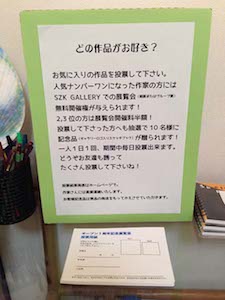 どの作品がお好き?
お気に入りの作品を投票して下さい。
人気ナンバーワンになった作家の方には
SZK GALLERY での展覧会
無料開催権が与えられます!
2,3位の方は展覧会開催料半額!
投票して下さった方へも抽選で10名様に
記念品
が贈られます!
一人1日1回、期間中毎日投票出来ます。
どうぞお友達も誘って
たくさん投票して下さいね!
投票結果発表はホームページで。